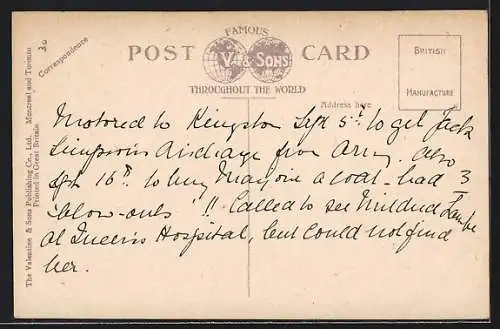 FAMOUS
POST CARD
V. & SONS
THROUGHOUT THE WORLD
BRITISH
MANUFACTURE
30
Correspondence
Address here
The Valentine & Sons Publishing Co., Ltd., Montreal and Toronto
Printed in Great Britain
Motored to Kingston Sept 5th to get Jack
Simpson's discharge from Army. Also
Sept 16th to buy Marjorie a coat - had 3
"blow-outs"!! Called to see Mildred
at Queen's Hospital, but could not find
her.